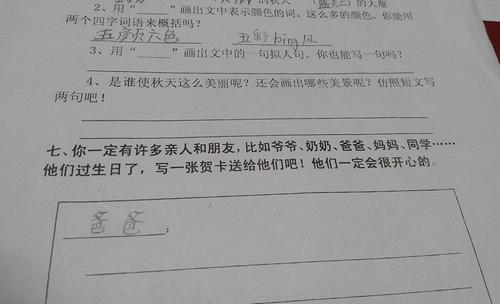 的秋天 (蓝天上)的大雁
2、用“____”画出文中表示颜色的词。这么多的颜色，你能用
两个四字词语来概括吗？
五颜六色 五彩bīng风
3、用“____”画出文中的一句拟人句。你也能写一句吗？
4、是谁使秋天这么美丽呢？还会画出哪些美景呢？仿照短文写
两句吧！
七、你一定有许多亲人和朋友，比如爷爷、奶奶、爸爸、妈妈、同学……
他们过生日了，写一张贺卡送给他们吧！他们一定会很开心的。
爸爸：